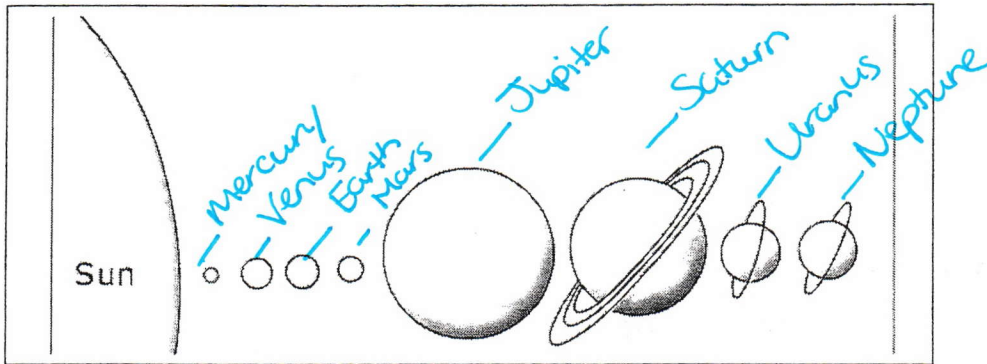 Sun
Mercury
Venus
Earth
Mars
Jupiter
Saturn
Uranus
Neptune